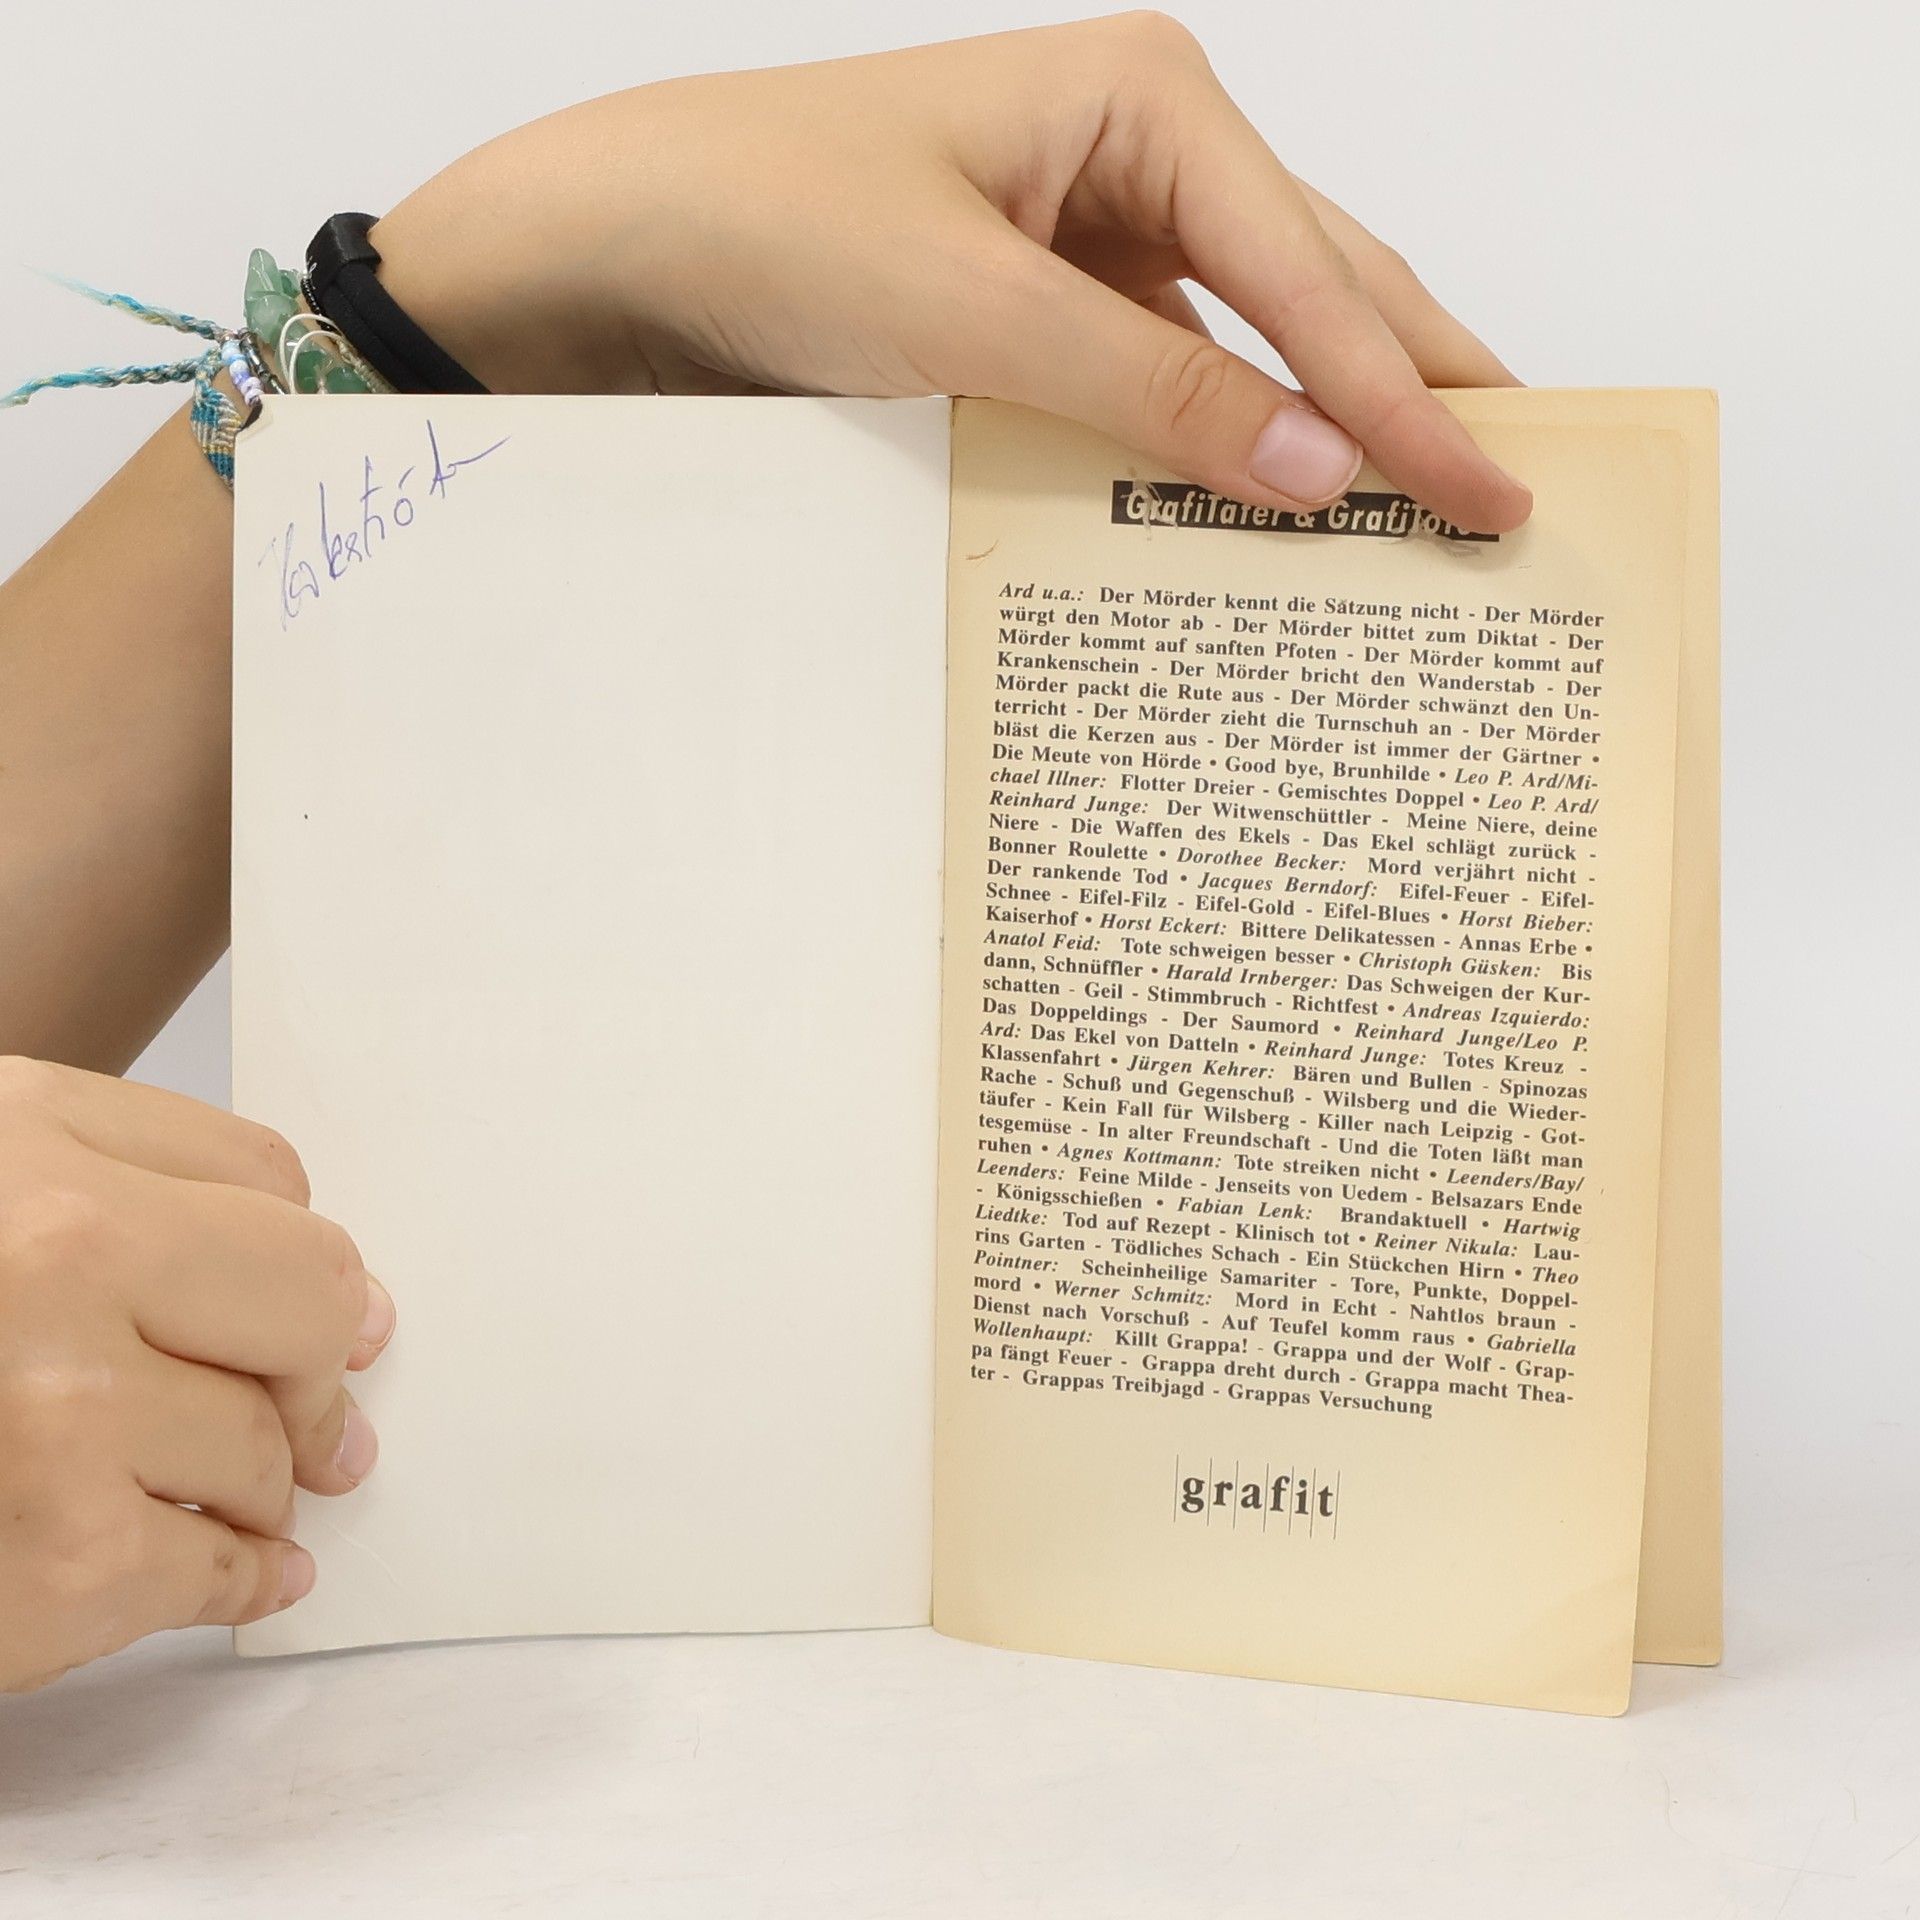 GrafiTäter & GrafiTote
Ard u.a.: Der Mörder kennt die Satzung nicht - Der Mörder
würgt den Motor ab - Der Mörder bittet zum Diktat - Der
Mörder kommt auf sanften Pfoten - Der Mörder kommt auf
Krankenschein - Der Mörder bricht den Wanderstab - Der
Mörder packt die Rute aus - Der Mörder schwänzt den Un-
terricht - Der Mörder zieht die Turnschuh an - Der Mörder
bläst die Kerzen aus - Der Mörder ist immer der Gärtner •
Die Meute von Hörde • Good bye, Brunhilde • Leo P. Ard/Mi-
chael Illner: Flotter Dreier - Gemischtes Doppel • Leo P. Ard/
Reinhard Junge: Der Witwenschüttler - Meine Niere, deine
Niere - Die Waffen des Ekels - Das Ekel schlägt zurück -
Bonner Roulette • Dorothee Becker: Mord verjährt nicht -
Der rankende Tod • Jacques Berndorf: Eifel-Feuer - Eifel-
Schnee - Eifel-Filz - Eifel-Gold - Eifel-Blues • Horst Bieber:
Kaiserhof • Horst Eckert: Bittere Delikatessen - Annas Erbe •
Anatol Feid: Tote schweigen besser • Christoph Güsken: Bis
dann, Schnüffler • Harald Irnberger: Das Schweigen der Kur-
schatten - Geil - Stimmbruch - Richtfest • Andreas Izquierdo:
Das Doppeldings - Der Saumord • Reinhard Junge/Leo P.
Ard: Das Ekel von Datteln • Reinhard Junge: Totes Kreuz -
Klassenfahrt • Jürgen Kehrer: Bären und Bullen - Spinozas
Rache - Schuß und Gegenschuß - Wilsberg und die Wieder-
täufer - Kein Fall für Wilsberg - Killer nach Leipzig - Got-
tesgemüse - In alter Freundschaft - Und die Toten läßt man
ruhen • Agnes Kottmann: Tote streiken nicht • Leenders/Bay/
Leenders: Feine Milde - Jenseits von Uedem - Belsazars Ende
- Königsschießen • Fabian Lenk: Brandaktuell • Hartwig
Liedtke: Tod auf Rezept - Klinisch tot • Reiner Nikula: Lau-
rins Garten - Tödliches Schach - Ein Stückchen Hirn • Theo
Pointner: Scheinheilige Samariter - Tore, Punkte, Doppel-
mord • Werner Schmitz: Mord in Echt - Nahtlos braun -
Dienst nach Vorschuß - Auf Teufel komm raus • Gabriella
Wollenhaupt: Killt Grappa! - Grappa und der Wolf - Grap-
pa fängt Feuer - Grappa dreht durch - Grappa macht Thea-
ter - Grappas Treibjagd - Grappas Versuchung
grafit